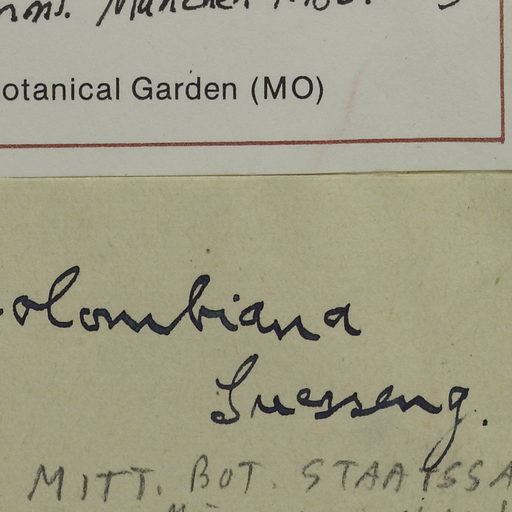 München
otanical Garden (MO)
olombiana
Suesseng.
MITT. BOT. STAATSSA